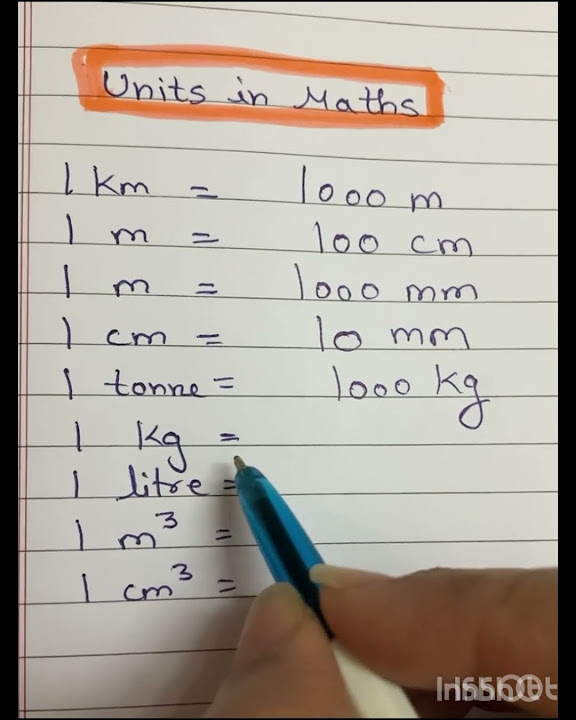 Units in Maths
1 Km = 1000 m
1 m = 100 cm
1 m = 1000 mm
1 cm = 10 mm
1 tonne = 1000 Kg
1 Kg =
1 litre =
1 m³ =
1 cm³ =